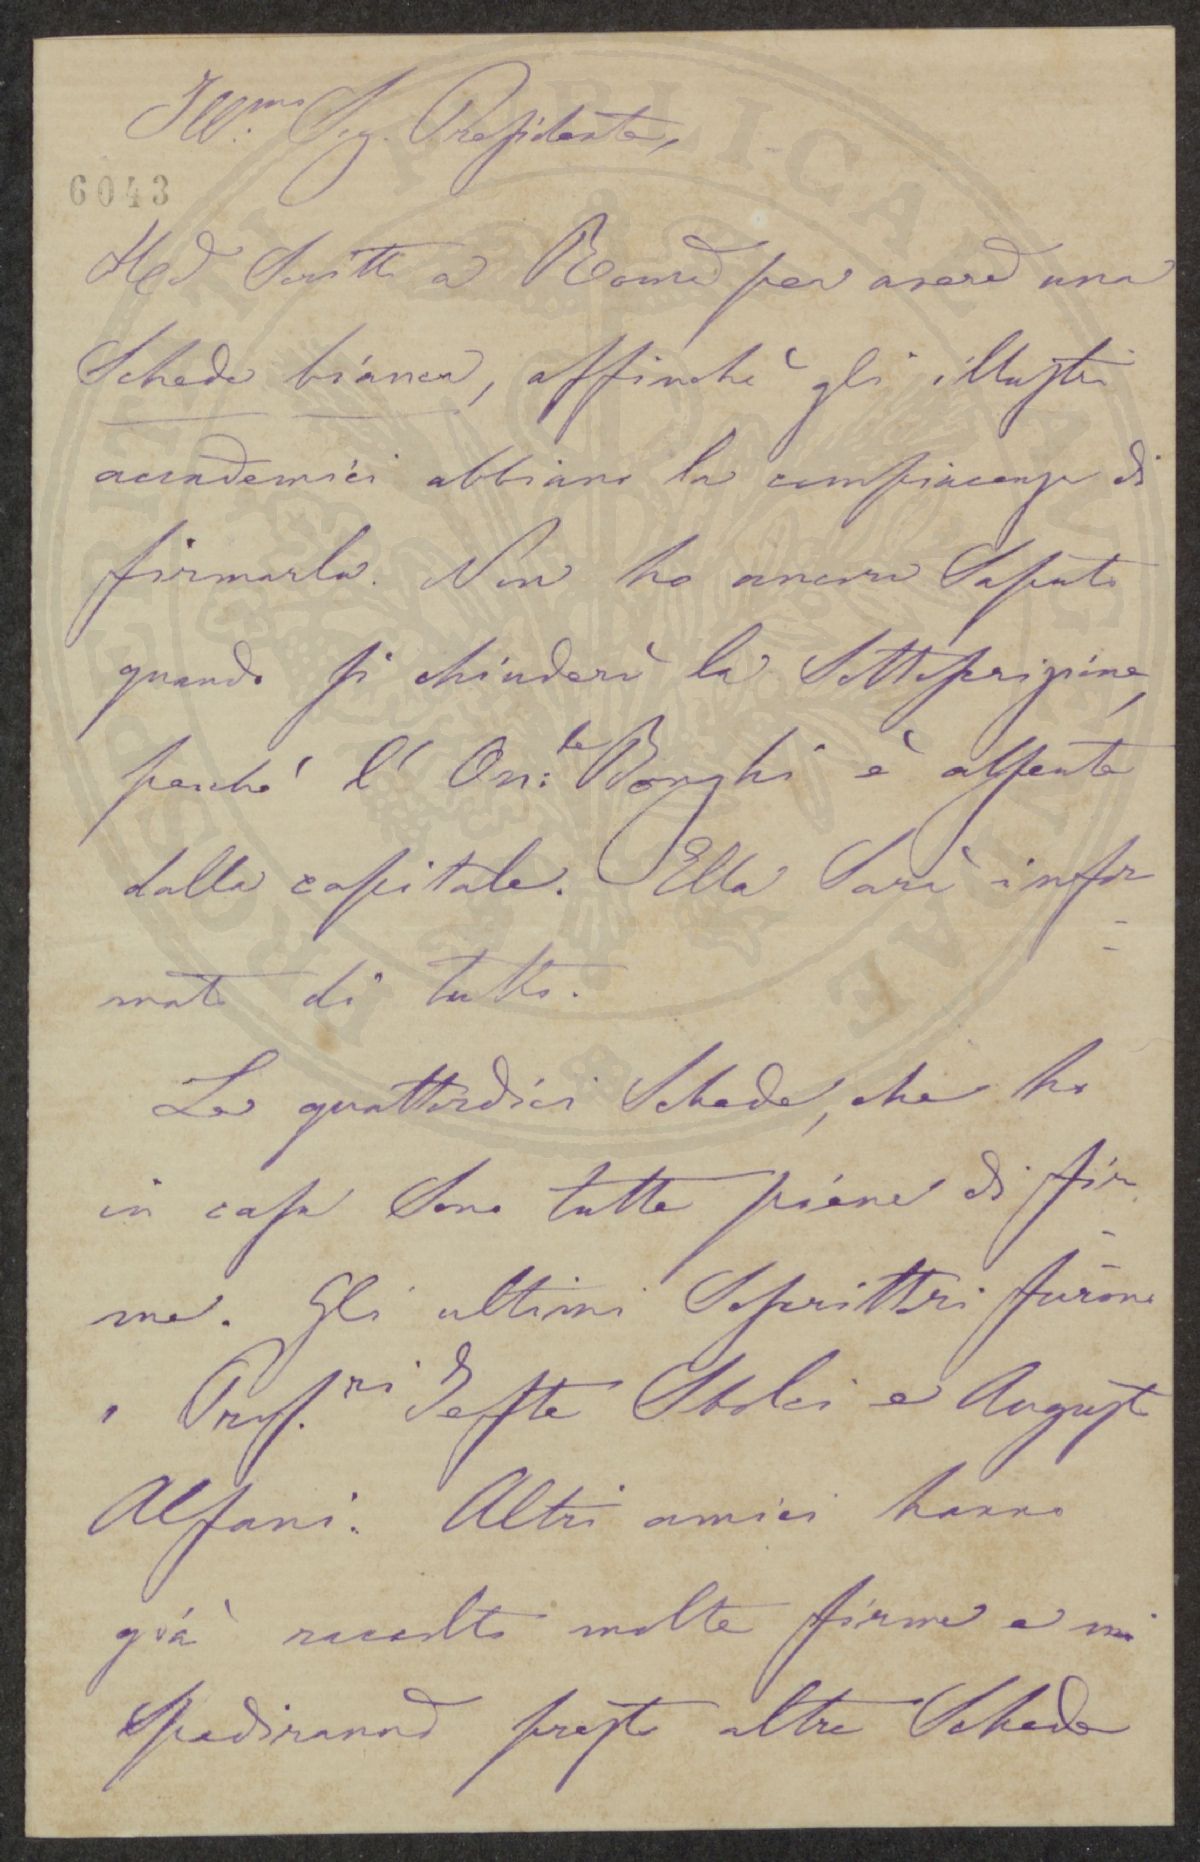 Ill.mo Sig. Presidente,
6043
Ho scritto a Roma per avere una
scheda bianca, affinchè gli illustri
accademici abbiano la compiacenza di
firmarla. Non ho ancora saputo
quando si chiuderà la sottoscrizione,
perchè l'On.le Bonghi è assente
dalla capitale. Ella sarà infor-
mato di tutto.
Le quattordici schede, che ho
in casa sono tutte piene di fir-
me. Gli ultimi soscrittori furono
i Prof.ri Jefte Sbolci e Augusto
Alfani. Altri amici hanno
già raccolto molte firme e mi
spediranno presto altre schede